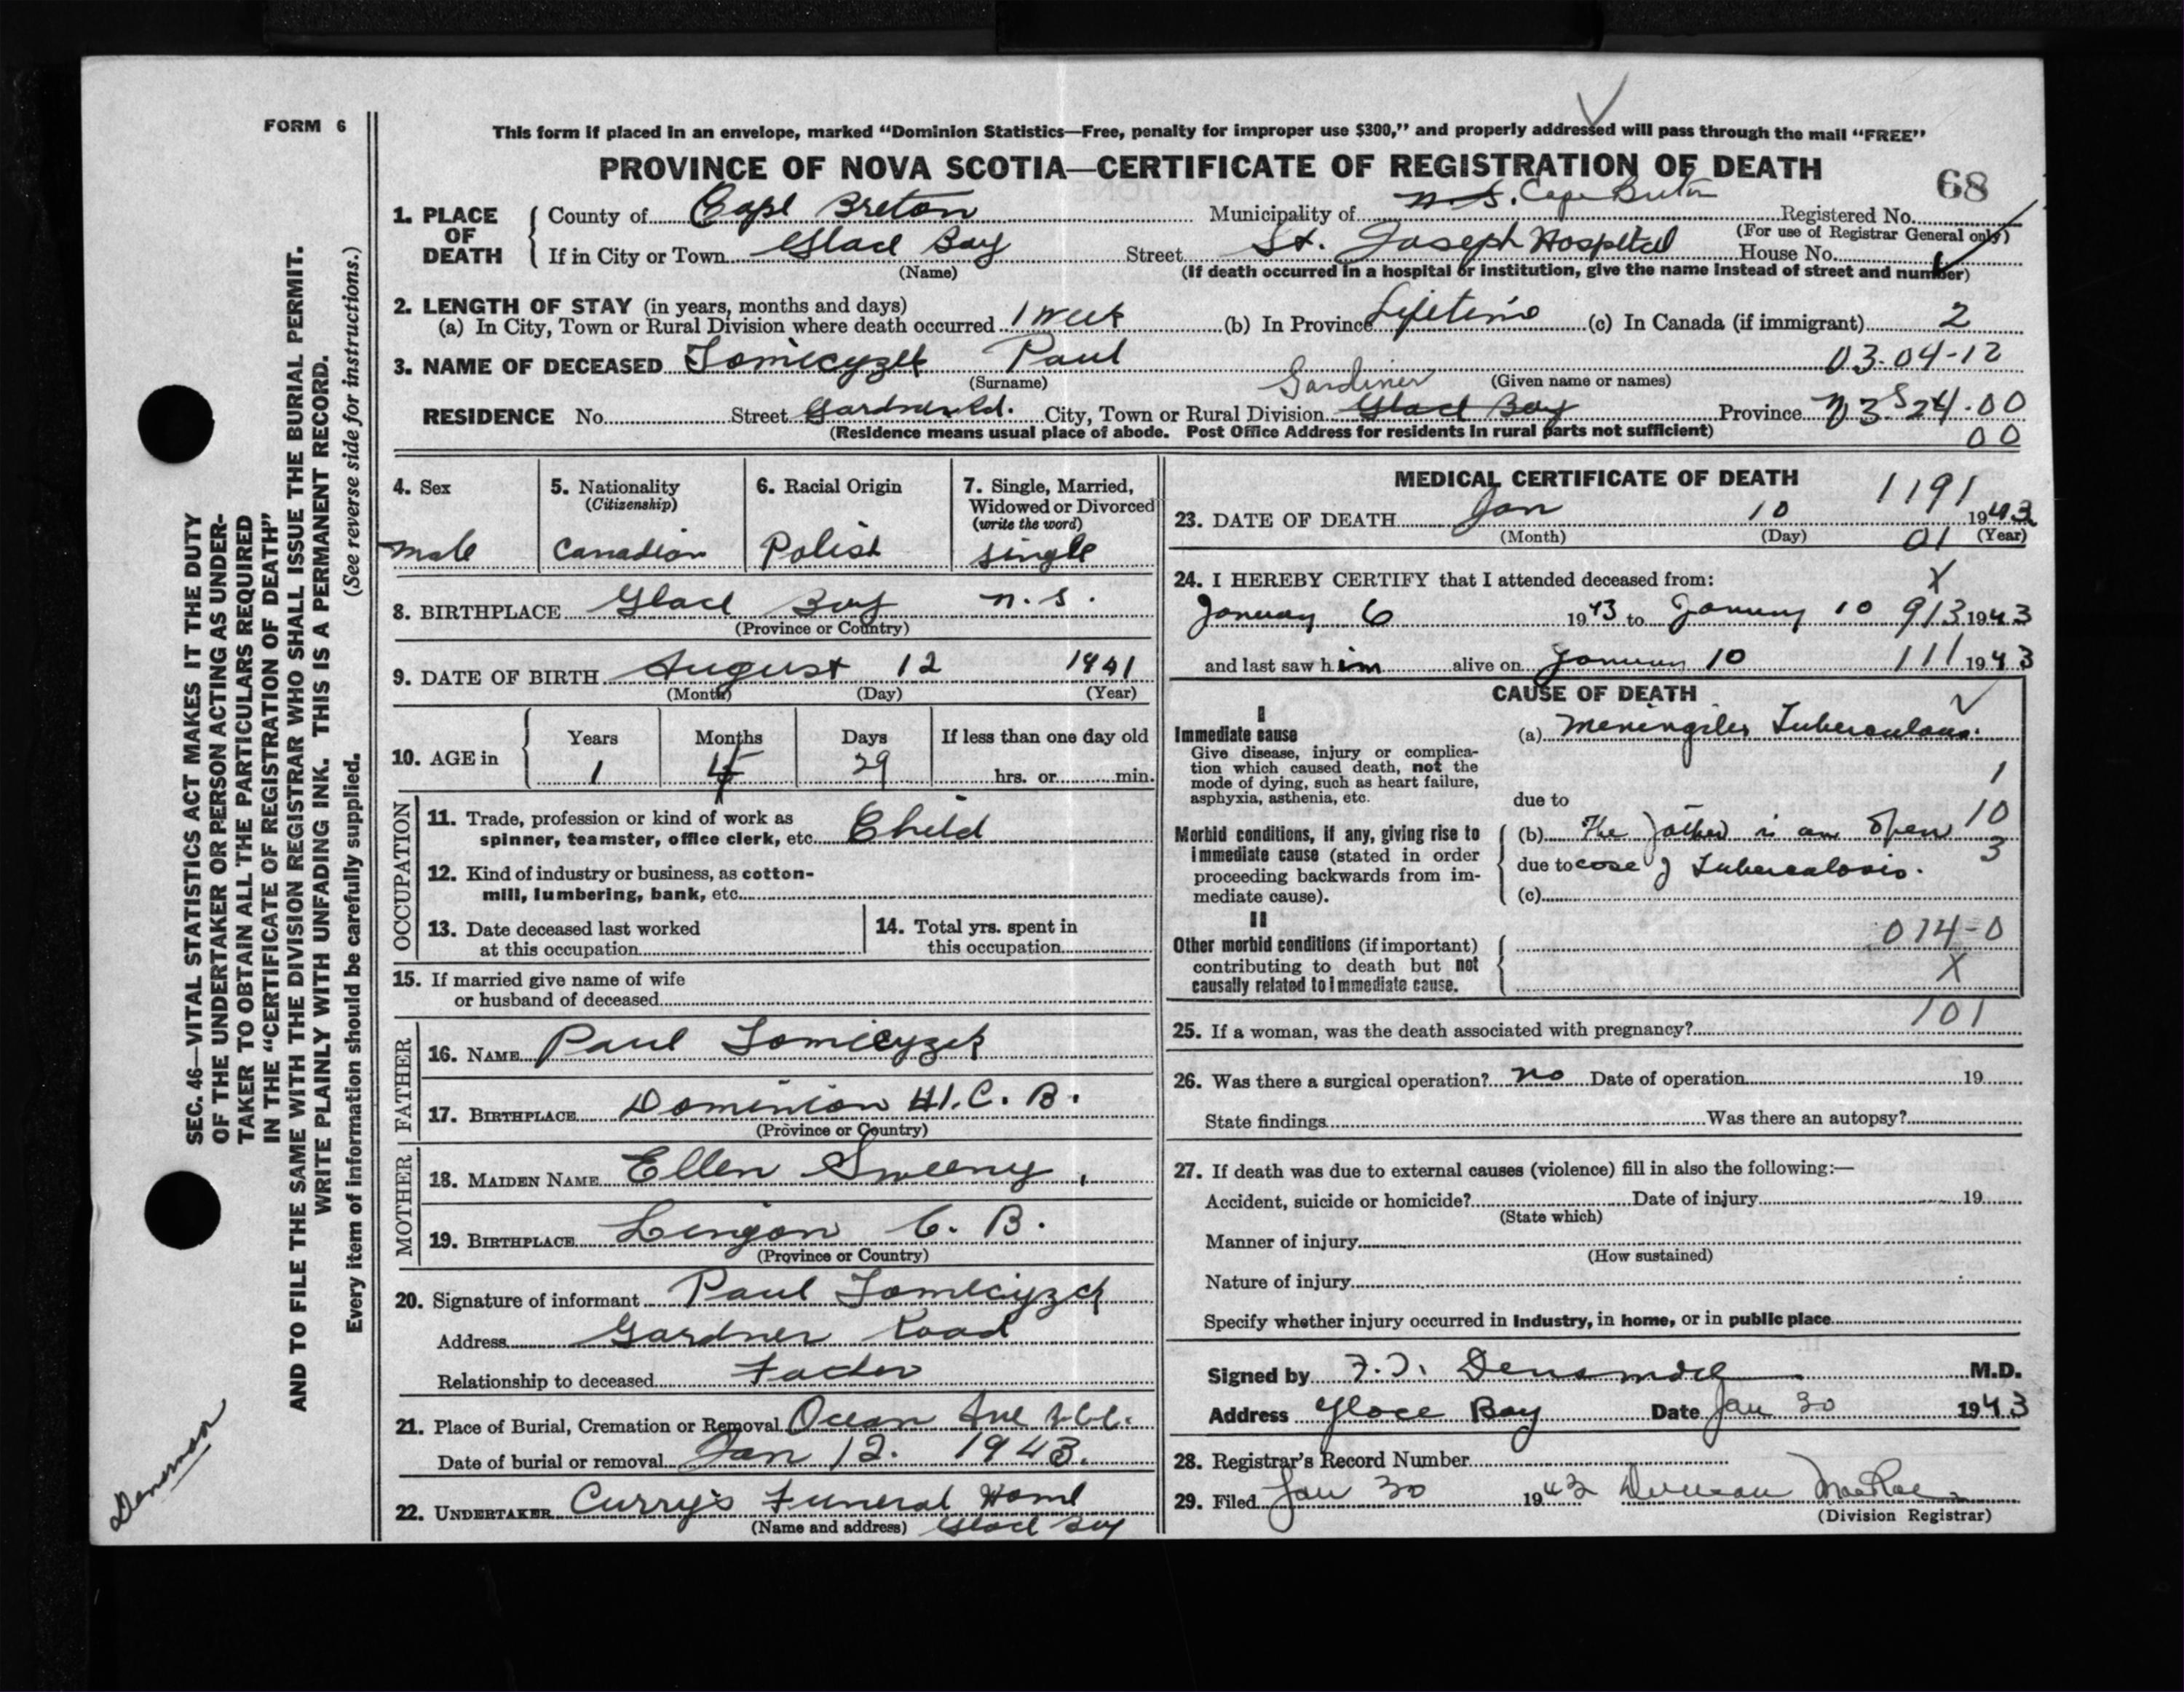 FORM 6
This form if placed in an envelope, marked “Dominion Statistics—Free, penalty for improper use $300,” and properly addressed will pass through the mail “FREE”
PROVINCE OF NOVA SCOTIA—CERTIFICATE OF REGISTRATION OF DEATH
68
1. PLACE OF DEATH
County of Cape Breton Municipality of N.S. Cape Breton Registered No.
(For use of Registrar General only)
If in City or Town Glace Bay Street St. Joseph Hospital House No.
(Name) (If death occurred in a hospital or institution, give the name instead of street and number)
2. LENGTH OF STAY (in years, months and days)
(a) In City, Town or Rural Division where death occurred 1 week (b) In Province Lifetime (c) In Canada (if immigrant) 2
3. NAME OF DECEASED Tomicyzek Paul 03-04-12
(Surname) Gardiner (Given name or names)
RESIDENCE No. Street Gardner Rd. City, Town or Rural Division Glace Bay Province N S 3 24.00
(Residence means usual place of abode. Post Office Address for residents in rural parts not sufficient) 00
4. Sex
male
5. Nationality
(Citizenship)
Canadian
6. Racial Origin
Polish
7. Single, Married, Widowed or Divorced
(write the word)
single
8. BIRTHPLACE Glace Bay N.S.
(Province or Country)
9. DATE OF BIRTH August 12 1941
(Month) (Day) (Year)
10. AGE in Years Months Days If less than one day old
1 4 29 hrs. or min.
OCCUPATION
11. Trade, profession or kind of work as
spinner, teamster, office clerk, etc. Child
12. Kind of industry or business, as cotton-
mill, lumbering, bank, etc.
13. Date deceased last worked
at this occupation
14. Total yrs. spent in
this occupation
15. If married give name of wife
or husband of deceased
FATHER
16. NAME Paul Tomicyzek
17. BIRTHPLACE Dominion #1. C. B.
(Province or Country)
MOTHER
18. MAIDEN NAME Ellen Sweeny
19. BIRTHPLACE Lingan C. B.
(Province or Country)
20. Signature of informant Paul Tomicyzek
Address Gardner Road
Relationship to deceased Father
21. Place of Burial, Cremation or Removal Ocean Ave
Date of burial or removal Jan 12. 1943.
22. UNDERTAKER Curry's Funeral Home
(Name and address) Glace Bay
MEDICAL CERTIFICATE OF DEATH
1191
23. DATE OF DEATH Jan 10 1943
(Month) (Day) 01 (Year)
24. I HEREBY CERTIFY that I attended deceased from: X
January 6 1943 to January 10 913 1943
and last saw him alive on January 10 111 1943
CAUSE OF DEATH
I
Immediate cause
Give disease, injury or complica-
tion which caused death, not the
mode of dying, such as heart failure,
asphyxia, asthenia, etc.
(a) Meningites Tuberculous.
1
due to
10
Morbid conditions, if any, giving rise to
immediate cause (stated in order
proceeding backwards from im-
mediate cause).
(b) The father is an open
3
due to case of Tuberculosis.
(c)
II
Other morbid conditions (if important)
contributing to death but not
causally related to immediate cause.
014-0
X
101
25. If a woman, was the death associated with pregnancy?
26. Was there a surgical operation? no Date of operation 19
State findings Was there an autopsy?
27. If death was due to external causes (violence) fill in also the following:—
Accident, suicide or homicide? Date of injury 19
(State which)
Manner of injury
(How sustained)
Nature of injury
Specify whether injury occurred in industry, in home, or in public place
Signed by F.T. Densmore M.D.
Address Glace Bay Date Jan 30 1943
28. Registrar's Record Number
29. Filed Jan 30 1943 Duncan MacRae
(Division Registrar)
SEC. 46—VITAL STATISTICS ACT MAKES IT THE DUTY
OF THE UNDERTAKER OR PERSON ACTING AS UNDER-
TAKER TO OBTAIN ALL THE PARTICULARS REQUIRED
IN THE “CERTIFICATE OF REGISTRATION OF DEATH”
AND TO FILE THE SAME WITH THE DIVISION REGISTRAR WHO SHALL ISSUE THE BURIAL PERMIT.
WRITE PLAINLY WITH UNFADING INK. THIS IS A PERMANENT RECORD.
Every item of information should be carefully supplied. (See reverse side for instructions.)